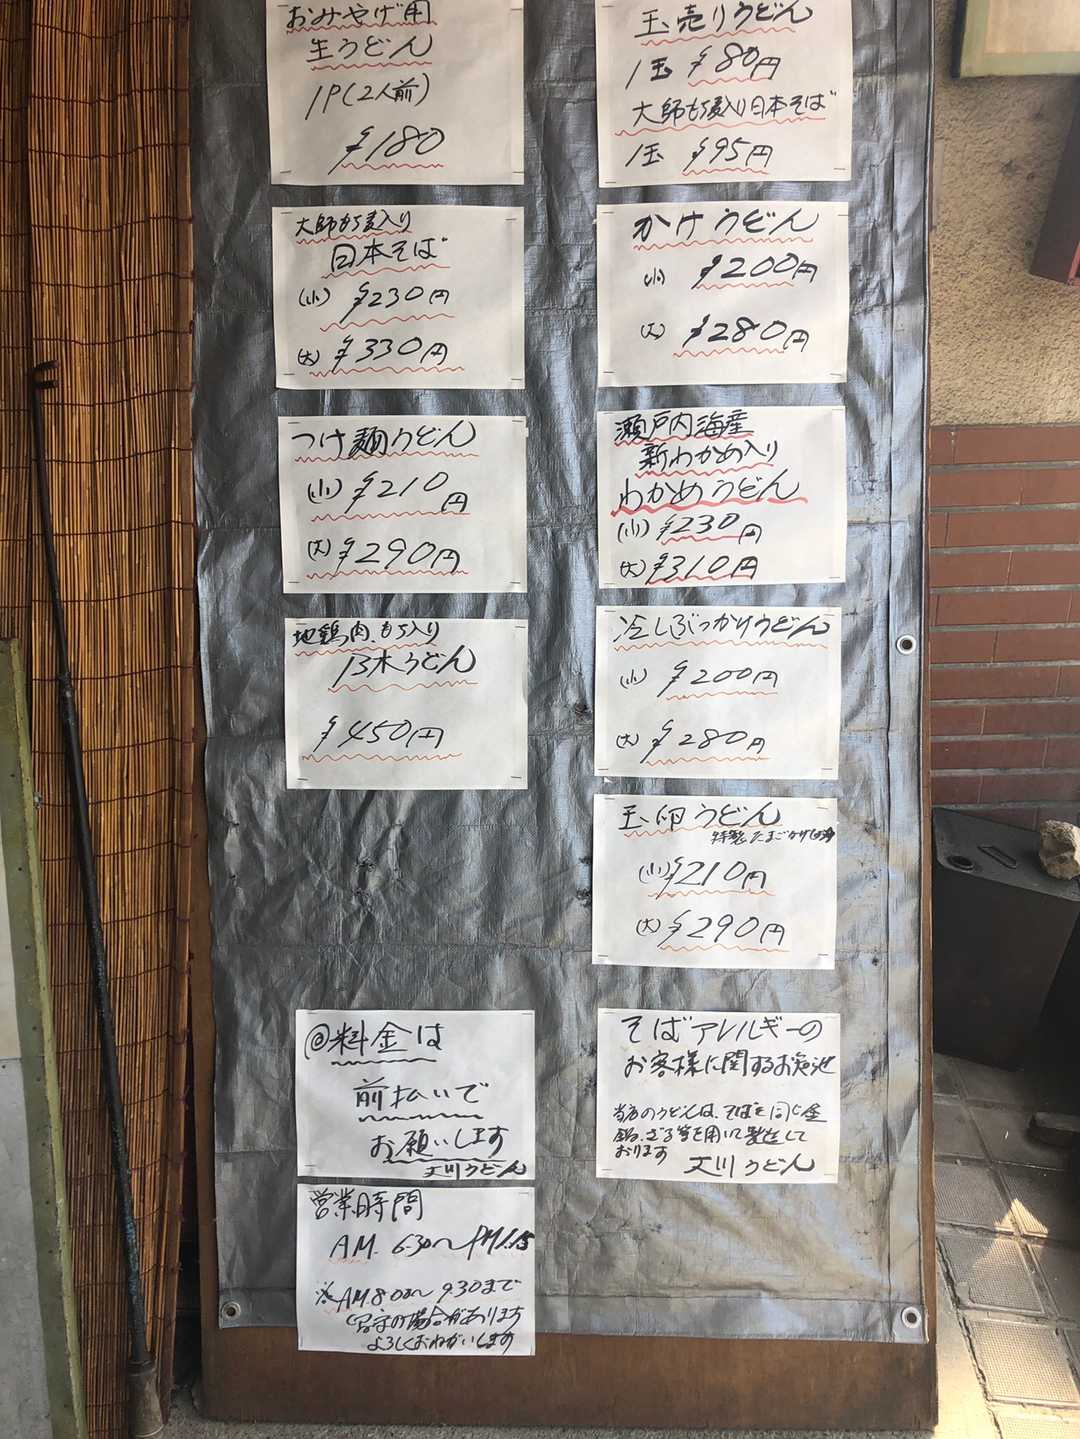 おみやげ用
生うどん
1P(2人前)
¥180
玉売りうどん
1玉 ¥80円
大師もち麦入り日本そば
1玉 ¥95円
大師もち麦入り
日本そば
(小) ¥230円
(大) ¥330円
かけうどん
(小) ¥200円
(大) ¥280円
つけ麺うどん
(小) ¥210円
(大) ¥290円
瀬戸内海産
新わかめ入り
わかめうどん
(小) ¥230円
(大) ¥310円
地鶏肉、もち入り
冷しぶっかけうどん
(小) ¥200円
(大) ¥280円
うどん
¥450円
玉卵うどん
特製たまごかけ
(小) ¥210円
(大) ¥290円
@料金は
前払いで
お願いします
大川うどん
そばアレルギーの
お客様に関するお
当店のうどんは、そばと同じ釜
鍋、ざる等を用いて製造して
おります 大川うどん
営業時間
AM. 6.30〜PM1.15
※AM8.00〜9.30まで
留守の場合があります
よろしくおねがいします